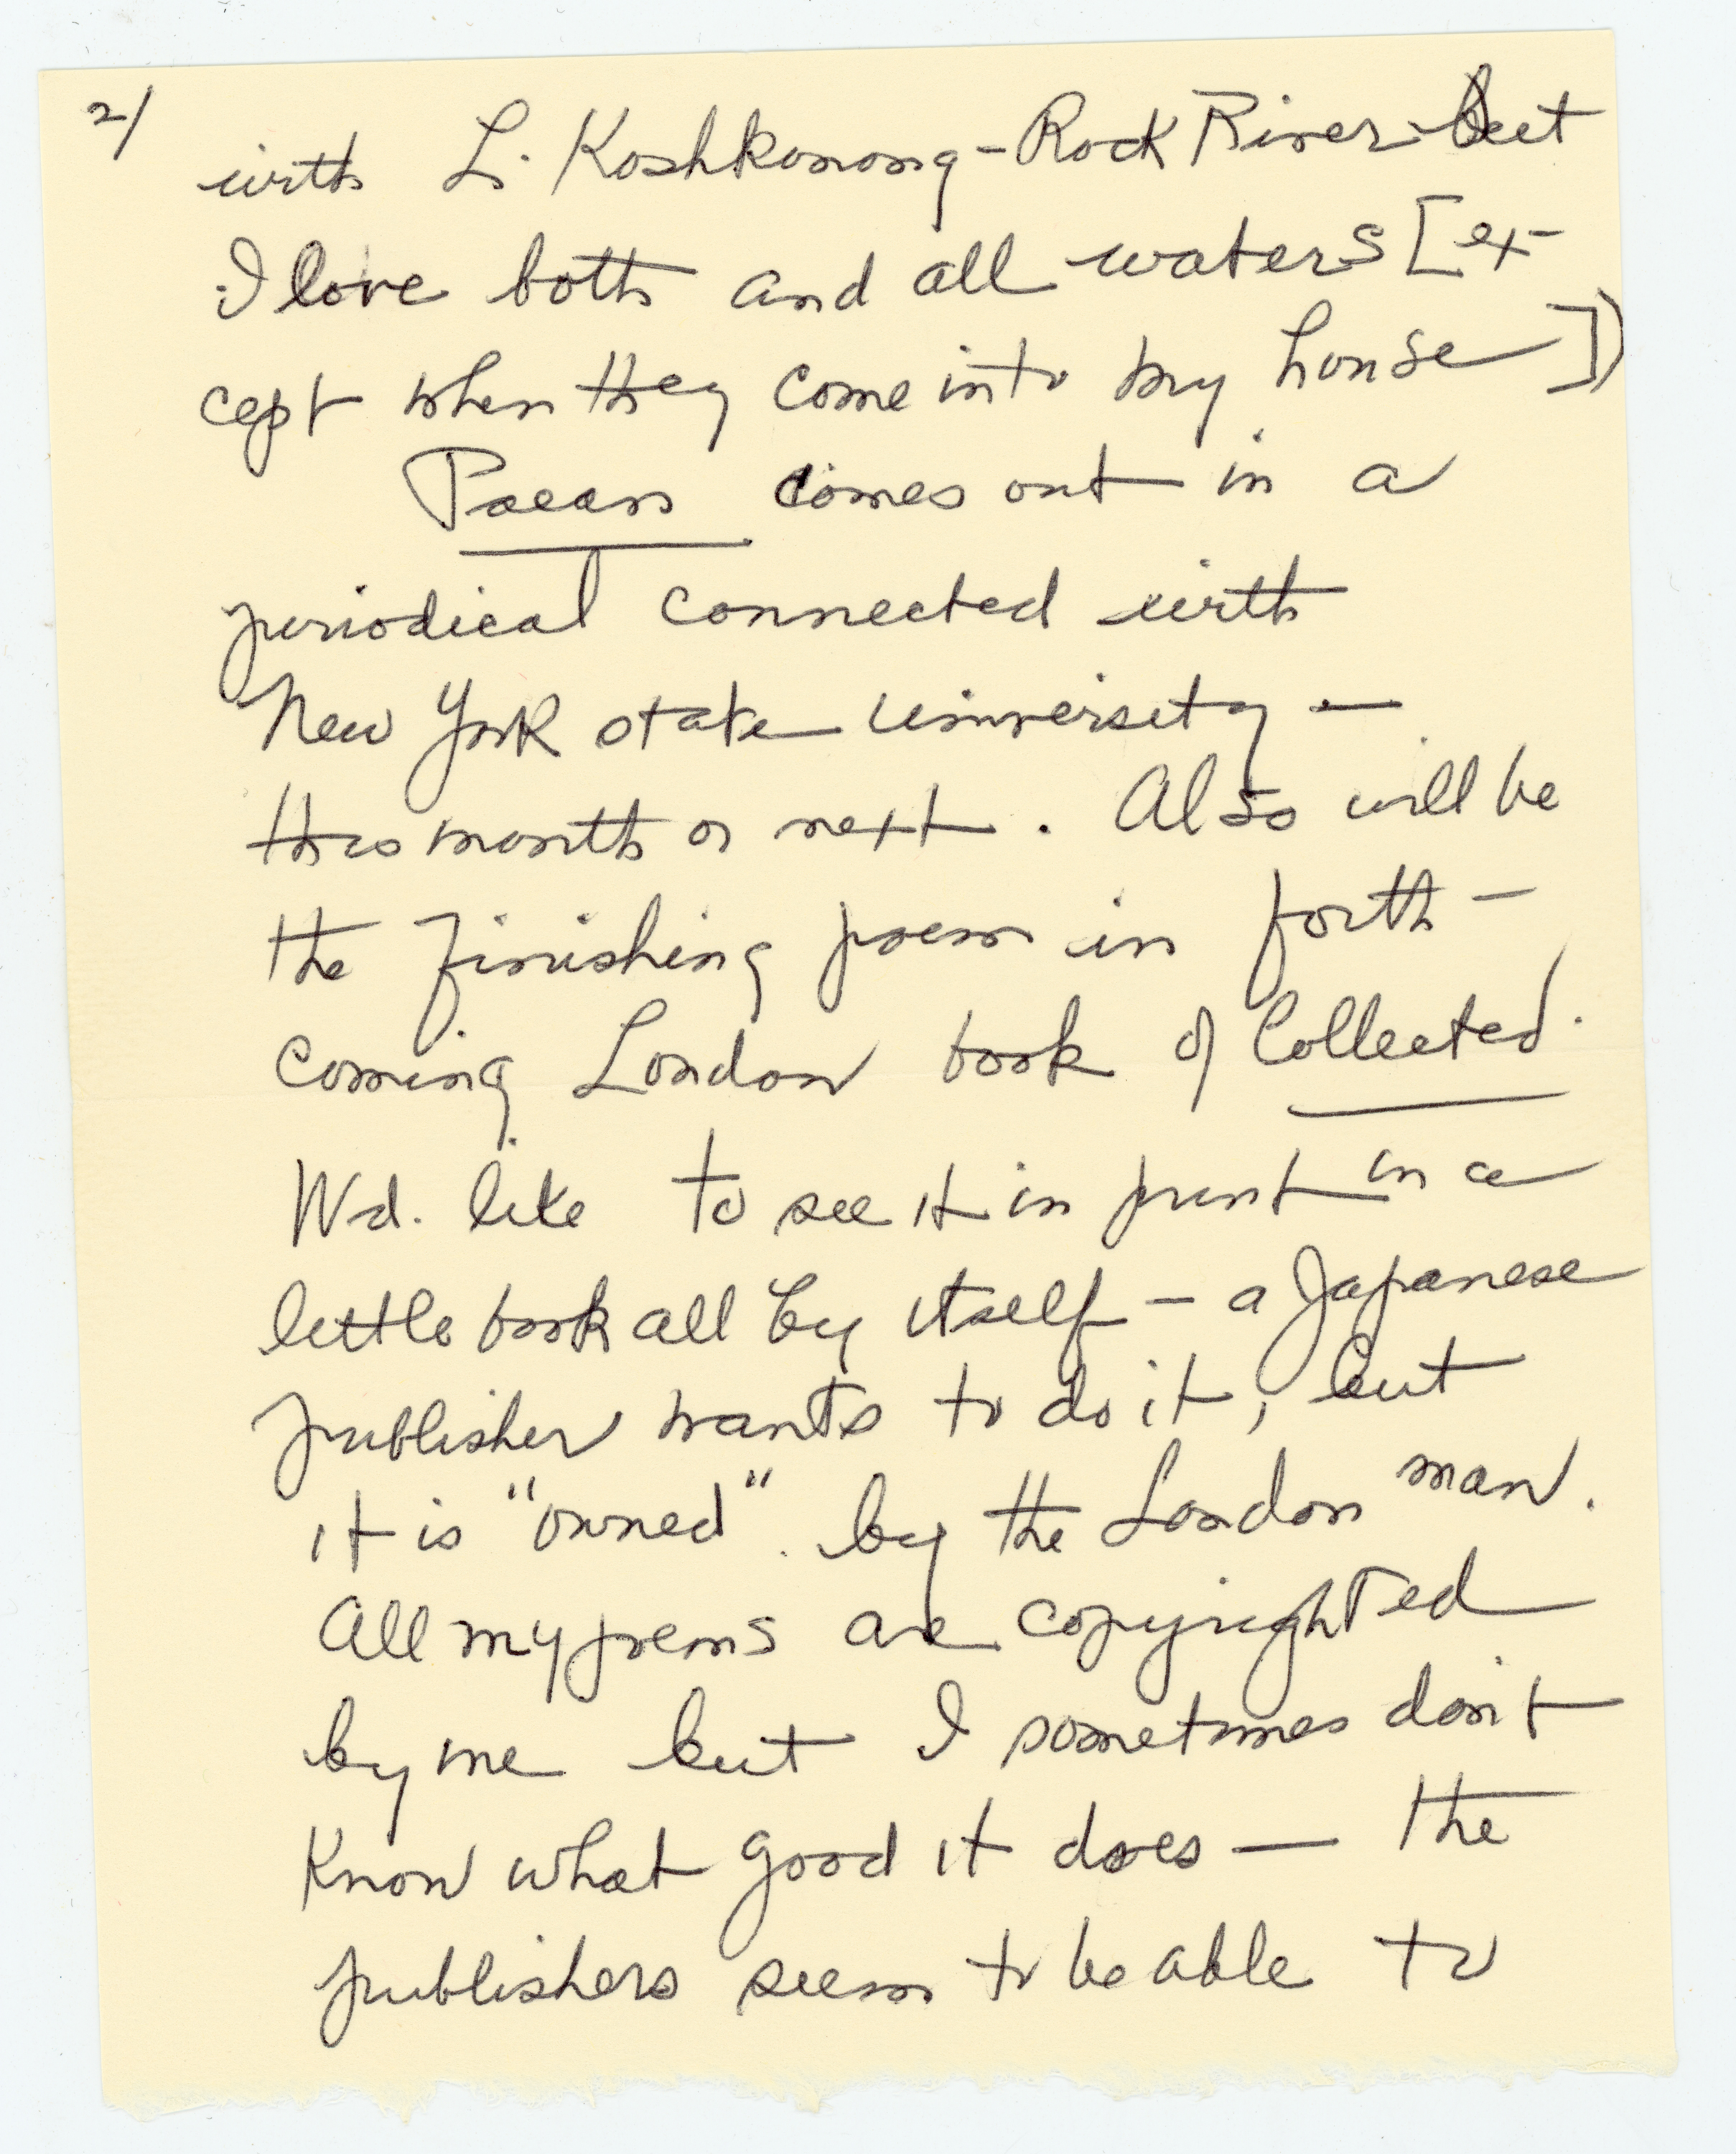 2/
with L. Koshkonong-Rock River-but
I love both and all waters [ex-
cept when they come into my house])
Paean comes out in a
periodical connected with
New York state university —
this month or next. Also will be
the finishing poem in forth-
coming London book of Collected.
Wd. like to see it in print in a
little book all by itself — a Japanese
publisher wants to do it, but
it is "owned" by the London man.
All my poems are copyrighted
by me but I sometimes don't
know what good it does — the
publishers seem to be able to